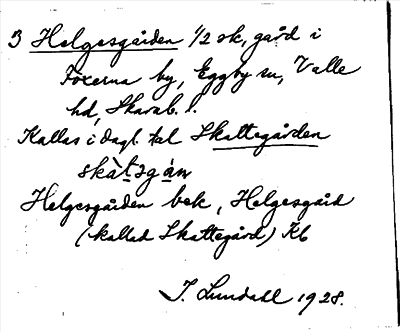 3 Helgesgården 1/2 sk, gård i
Foxerna by, Eggby sn, Valle
hd, Skarab. l.
Kallas i dagl. tal Skattegården
skàtəgán
Helgesgården bek, Helgesgård
(kallad Skattegård) Kb
I. Lundahl 1928.